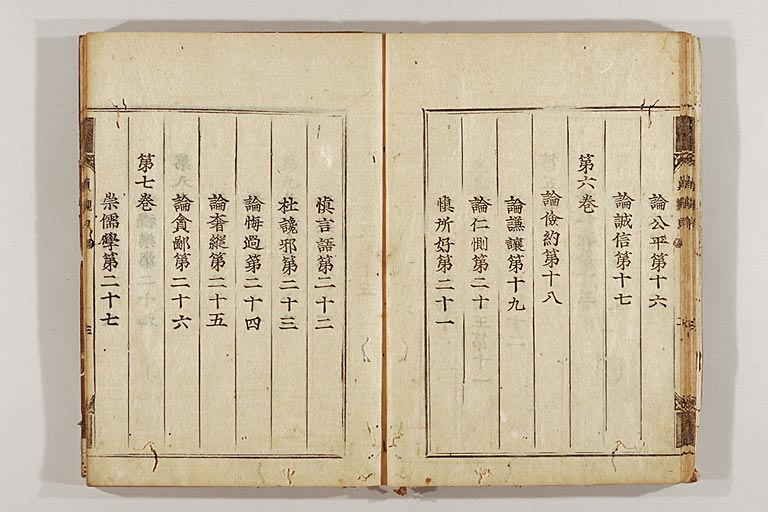 論公平第十六
論誠信第十七
第六巻
論儉約第十八
論謙讓第十九
論仁惻第二十
慎所好第二十一
慎言語第二十二
杜讒邪第二十三
論悔過第二十四
論奢縱第二十五
論貪鄙第二十六
第七巻
崇儒學第二十七